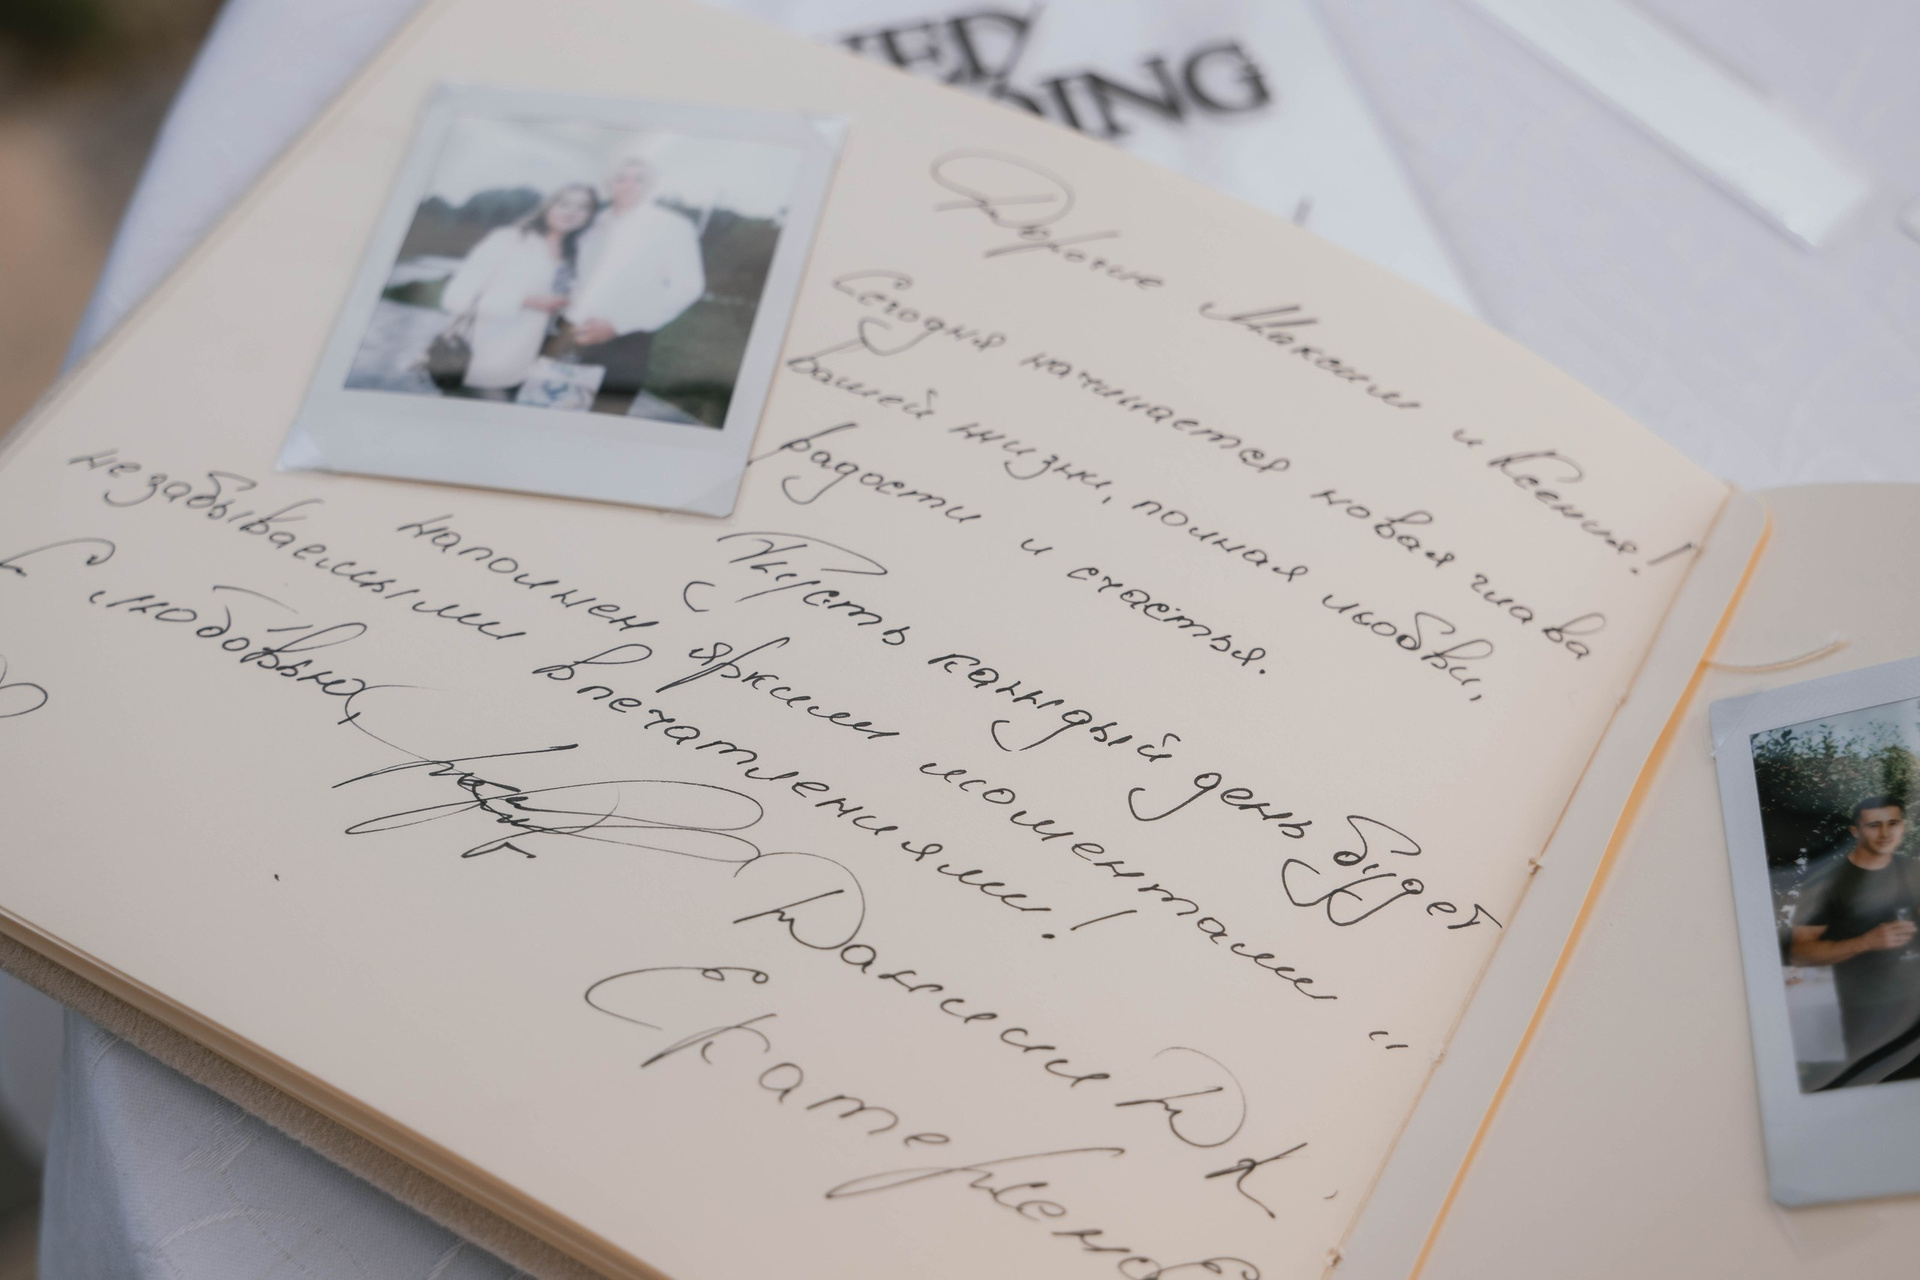 WED
DING
Дорогие Максим и Ксения!
Сегодня начинается новая глава
вашей жизни, полная любви,
радости и счастья.
Пусть каждый день будет
наполнен яркими моментами и
незабываемыми впечатлениями!
С любовью,
Даниил К.
Екатерина